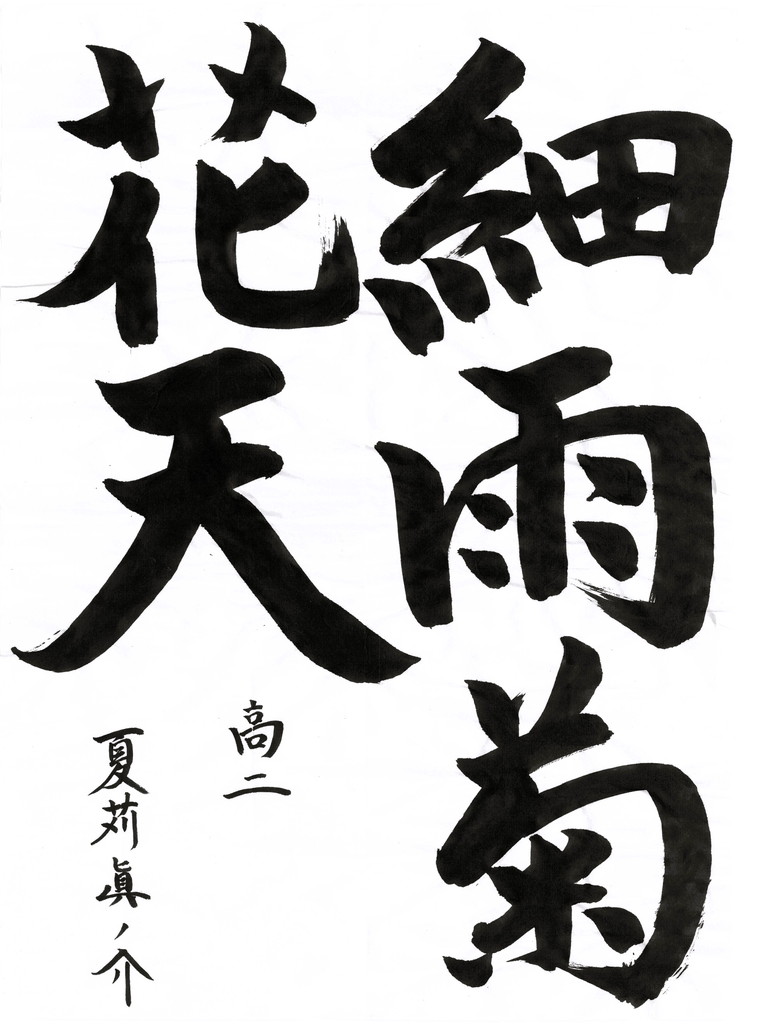 細雨菊
花天
高二
夏苅眞ノ介